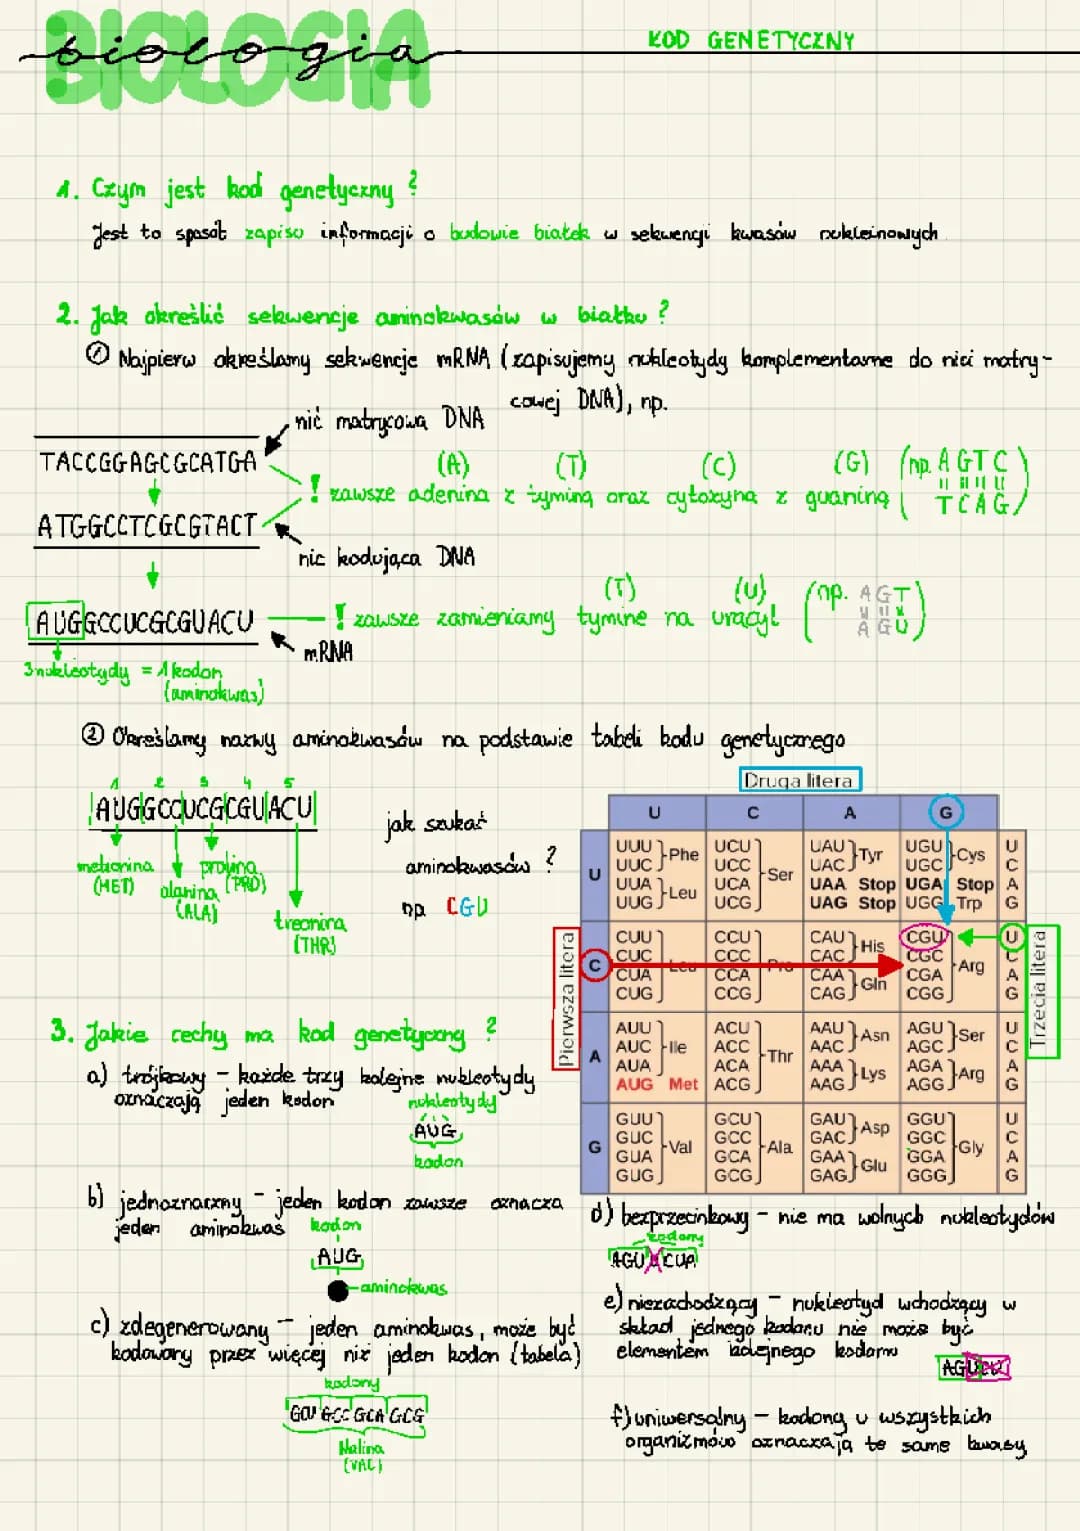 BIOLOGIA
biologia
KOD GENETYCZNY
1. Czym jest kod genetyczny?
Jest to sposób zapisu informacji o budowie białek w sekwencji kwasów nukleinowych
2. Jak określić sekwencje aminokwasów w białku?
① Najpierw określamy sekwencje mRNA (zapisujemy nukleotydy komplementarne do nici matry-
cowej DNA), np.
nić matrycowa DNA
TACCGGAGCGCATGA
(A) (T) (C) (G)
! zawsze adenina z tyminą oraz cytozyna z guaniną
(np. AGTC
TCAG)
ATGGCCTCGCGTACT
nic kodująca DNA
(T) (U)
AUGGCCUCGCGUACU
! zawsze zamieniamy tymine na uracyl
(np. AGT
AGU)
mRNA
3 nukleotydy = 1 kodon
(aminokwas)
② Określamy nazwy aminokwasów na podstawie tabeli kodu genetycznego
1 2 3 4 5
AUGGCCUCGCGUACU
metionina
(MET)
alanina
(ALA)
prolina
(PRO)
treonina
(THR)
jak szukać
aminokwasów ?
np. CGU
Druga litera
U C A G
Pierwsza litera
Trzecia litera
U
UUU UCU UAU UGU U
UUC Phe UCC UAC Tyr UGC Cys C
UUA UCA Ser UAA Stop UGA Stop A
UUG Leu UCG UAG Stop UGG Trp G
C
CUU CCU CAU CGU U
CUC CCC CAC His CGC C
CUA Leu CCA Pro CAA CGA Arg A
CUG CCG CAG Gln CGG G
A
AUU ACU AAU AGU U
AUC Ile ACC AAC Asn AGC Ser C
AUA ACA Thr AAA AGA A
AUG Met ACG AAG Lys AGG Arg G
G
GUU GCU GAU GGU U
GUC GCC GAC Asp GGC C
GUA Val GCA Ala GAA GGA Gly A
GUG GCG GAG Glu GGG G
3. Jakie cechy ma kod genetyczny ?
a) trójkowy - każde trzy kolejne nukleotydy
oznaczają jeden kodon
nukleotydy
AUG
kodon
b) jednoznaczny - jeden kodon zawsze oznacza
jeden aminokwas
kodon
AUG
aminokwas
c) zdegenerowany - jeden aminokwas, może być
kodowany przez więcej niż jeden kodon (tabela)
kodony
GCU GCC GCA GCG
Walina
(VAL)
d) bezprzecinkowy - nie ma wolnych nukleotydów
kodony
e) niezachodzący - nukleotyd wchodzący w
skład jednego kodonu nie może być
elementem kolejnego kodonu
f) uniwersalny - kodony u wszystkich
organizmów oznaczają te same kwasy